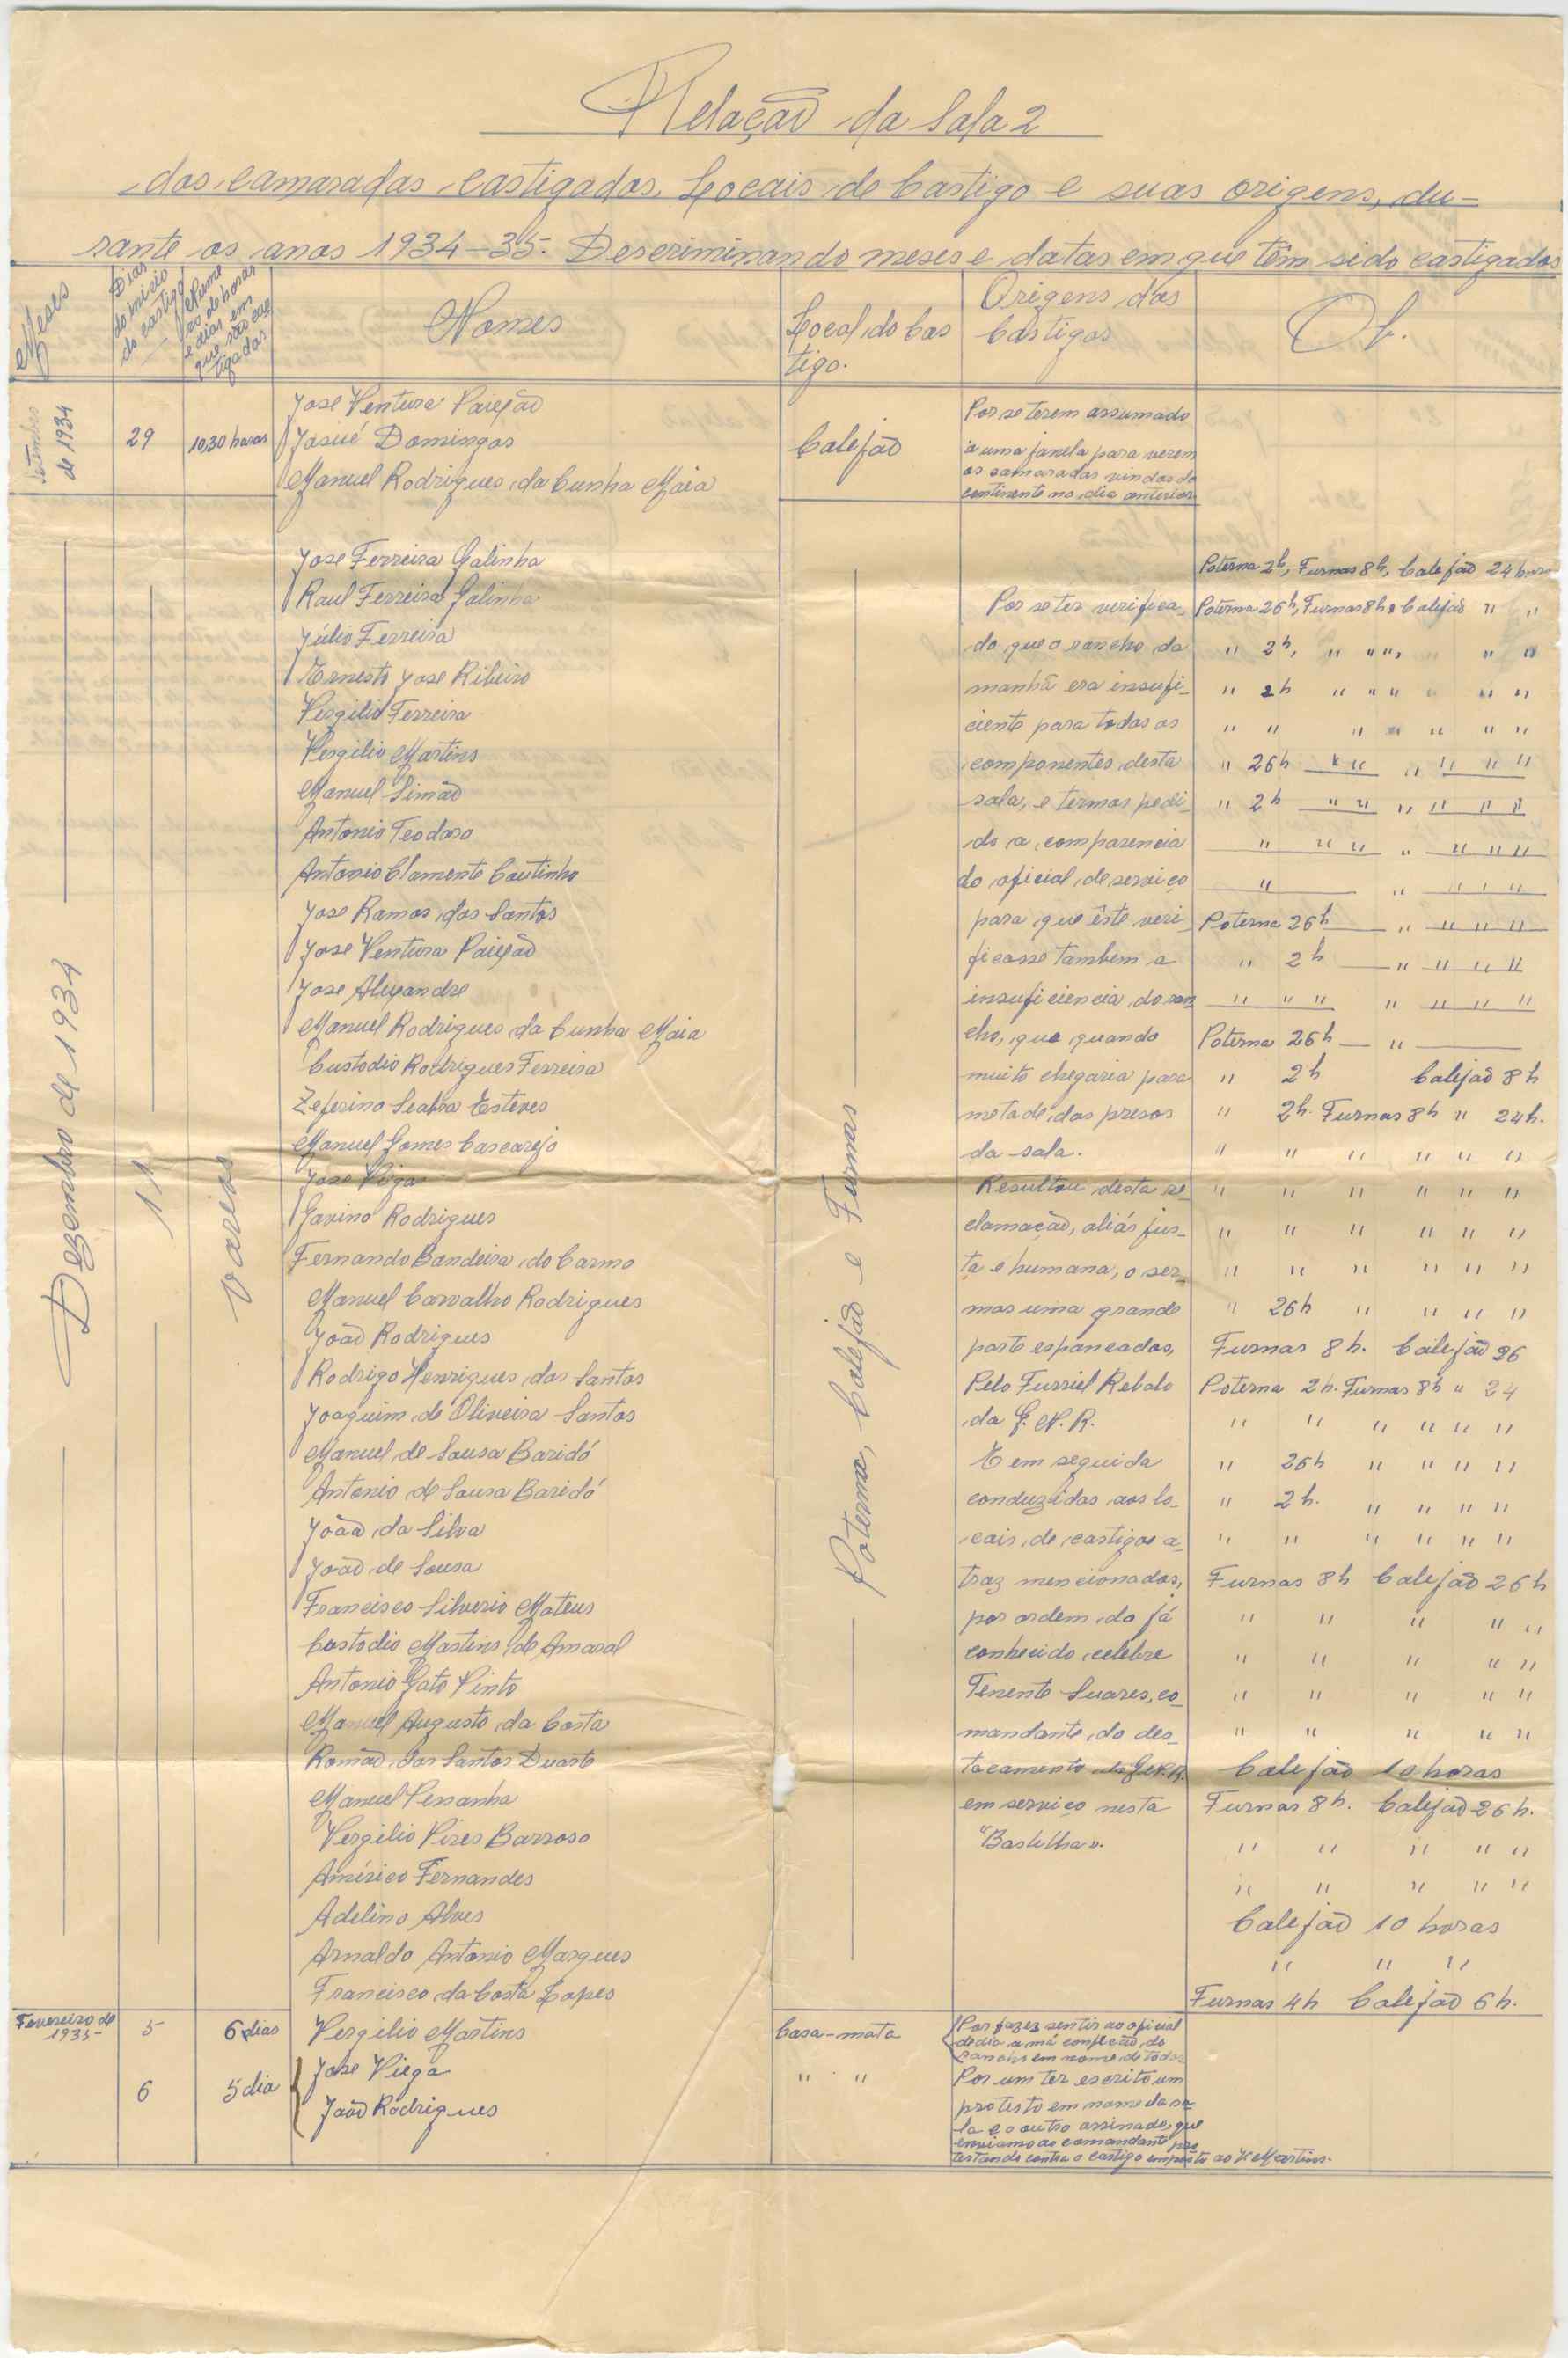 Relação da Sala 2
dos camaradas castigados, Locais de Castigo e suas origens, du-
rante os anos 1934-35. Descriminando meses e datas em que têm sido castigados
Meses
Dias
do inicio
do castigo
Nume
ro de horas
e dias em
que são cas
tigados
Nomes
Local do Cas
tigo.
Origens dos
Castigos
Ob.
Setembro
de 1934
29
10,30 horas
Jose Ventura Paixão
Josué Domingos
Manuel Rodrigues da Cunha Maia
Calejão
Por se terem assumado
a uma janela para verem
os camaradas vindos do
continente no dia anterior
Dezembro de 1934
11
Varias
Poterna, Calejão e Furnas
Jose Ferreira Galinha
Raul Ferreira Galinha
Júlio Ferreira
Ernesto Jose Ribeiro
Vergilio Ferreira
Vergilio Martins
Manuel Simão
Antonio Teodoro
Antonio Clamente Coutinho
Jose Ramos dos Santos
Jose Ventura Paixão
Jose Alexandre
Manuel Rodrigues da Cunha Maia
Custodio Rodrigues Ferreira
Zeferino Seabra Esteves
Manuel Gomes Cascarejo
Jose Viegas
Gavino Rodrigues
Fernando Bandeira do Carmo
Manuel Carvalho Rodrigues
João Rodrigues
Rodrigo Henriques dos Santos
Joaquim de Oliveira Santos
Manuel de Sousa Baridó
Antonio de Sousa Baridó
João da Silva
João de Sousa
Francisco Silverio Mateus
Custodio Martins de Amaral
Antonio Gato Pinto
Manuel Augusto da Costa
Romão dos Santos Duarte
Manuel Pessanha
Vergilio Pires Barroso
Américo Fernandes
Adelino Alves
Arnaldo Antonio Marques
Francisco da Costa Lopes
Por se ter verifica-
do que o rancho da
manhã era insufi-
ciente para todos os
componentes desta
sala, e termos pedi-
do a comparencia
do oficial de serviço
para que êste veri
ficasse tambem a
insuficiencia do ran
cho, que quando
muito chegaria para
metade dos presos
da sala.
Resultou desta re-
clamação, aliás jus-
ta e humana, o ser-
mos uma grande
parte espancados,
Pelo Furriel Rebalo
da G. N. R.
E em seguida
conduzidos aos lo-
cais de castigos a-
traz mencionados,
por ordem do já
conhecido celebre
Tenente Suares, co-
mandante do des-
tacamento da G.N.R.
em serviço nesta
"Bastilha".
Poterna 2h, Furnas 8h, Calejão 24 horas
Poterna 26h, Furnas 8h e Calejão " "
" 2h, " " ", " " "
" 2h " " " " " "
" " " " " " "
" 26h " " " " " "
" 2h " " " " " "
" " " " " " "
" " " " "
Poterna 26h " " " "
" 2h " " " "
" " " " " " "
Poterna 26h "
" 2h Calejão 8h
" 2h. Furnas 8h " 24h.
" " " " " "
" " " " " "
" " " " " "
" " " " " "
" 26h " " " "
Furnas 8h. Calejão 26
Poterna 2h. Furnas 8h " 24
" " " " " "
" 26h " " " "
" 2h. " " " "
" " " " " "
Furnas 8h Calejão 26h
" " " " "
" " " " "
" " " " "
" " " " "
Calejão 10 horas
Furnas 8h. Calejão 26h.
" " " " "
" " " " "
Calejão 10 horas
" " "
Furnas 4h Calejão 6h.
Fevereiro de
1935-
5
6 dias
Vergilio Martins
Casa-mata
Por fazer sentir ao oficial
de dia a má confecão do
rancho em nome de todos
6
5 dia
Jose Viega
João Rodrigues
" "
Por um ter escrito um
protesto em nome da sa-
la e o outro assinado, que
enviamos ao comandante pro
testando contra o castigo imposto ao V. Martins.